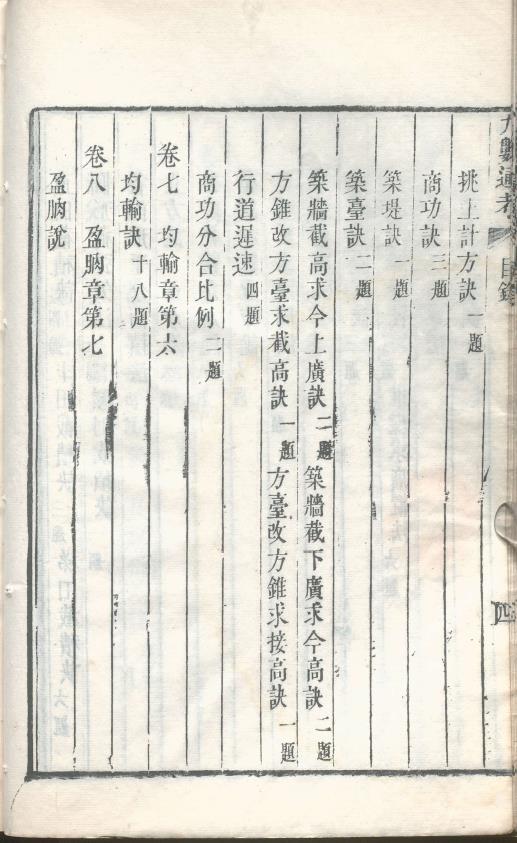 九數通考 目錄 四
挑土計方訣一題
商功訣三題
築堤訣一題
築臺訣二題
築牆截高求今上廣訣二題 築牆截下廣求今高訣二題
方錐改方臺求截高訣一題 方臺改方錐求接高訣一題
行道遲速四題
商功分合比例二題
卷七 均輸章第六
均輸訣十八題
卷八 盈朒章第七
盈朒說